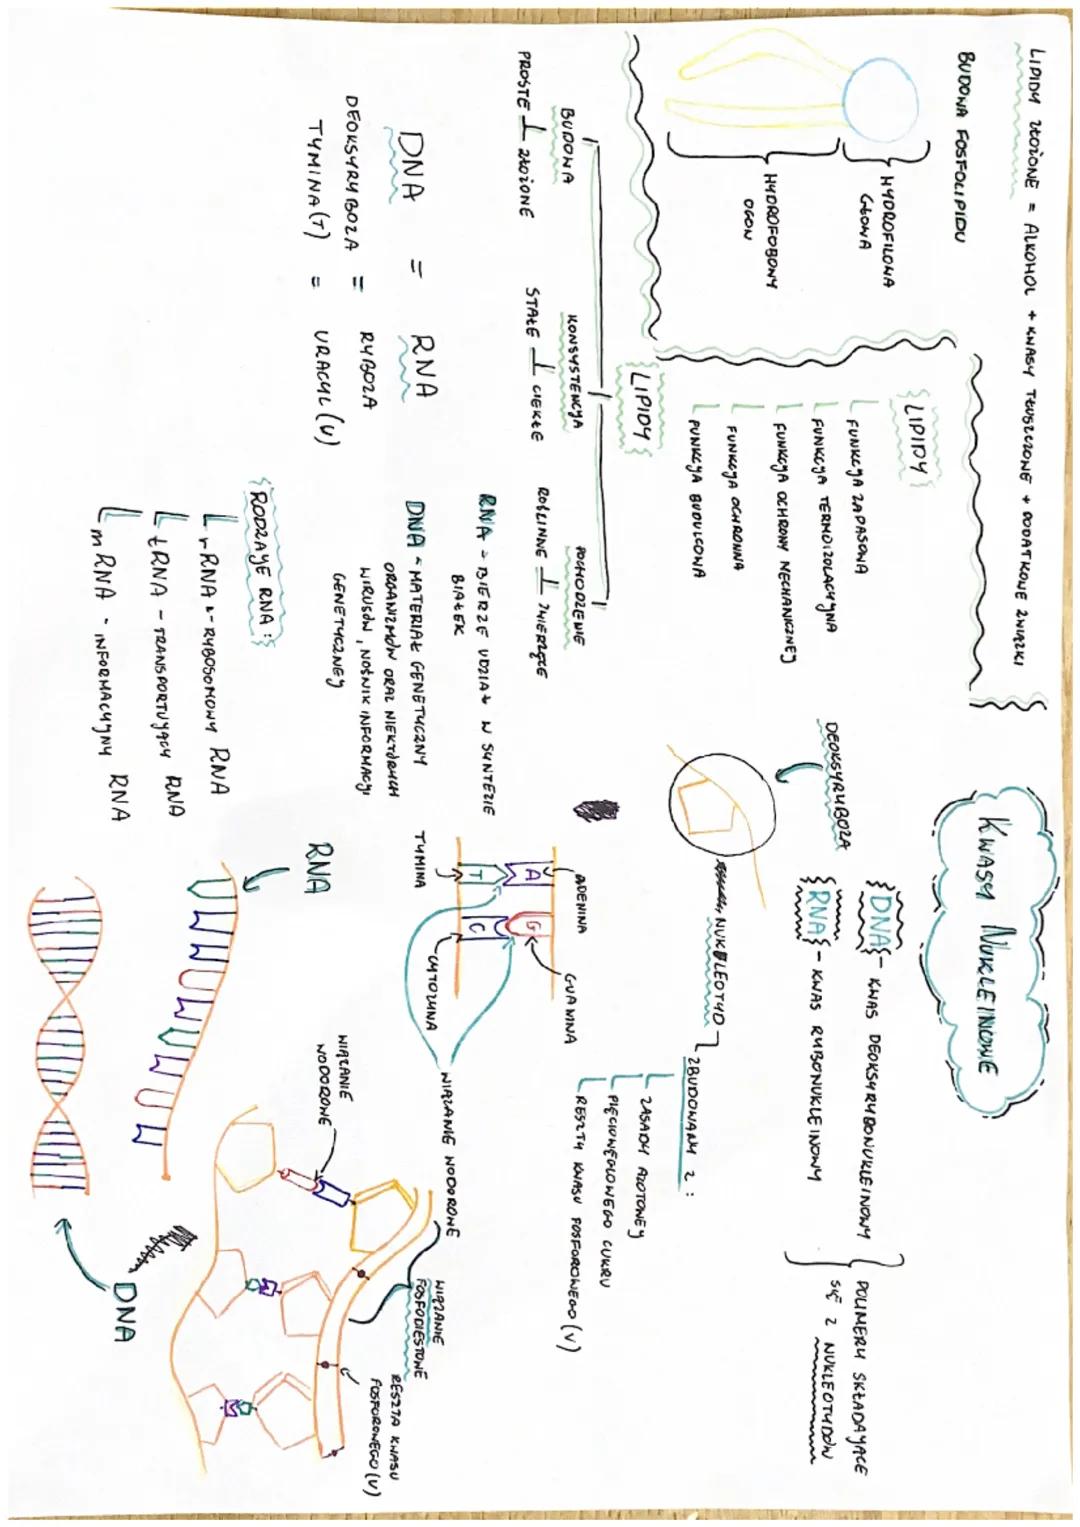 LIPIDY ZŁOŻONE = ALKOHOL + KWASY TŁUSZCZOWE + DODATKOWE ZWIĄZKI
BUDOWA FOSFOLIPIDU
HYDROFILOWA
GŁOWA
HYDROFOBOWY
OGON
LIPIDY
FUNKCJA ZAPASOWA
FUNKCJA TERMOIZOLACYJNA
FUNKCJA OCHRONY MECHANICZNEJ
FUNKCJA OCHRONNA
FUNKCJA BUDULCOWA
LIPIDY
BUDOWA
KONSYSTENCJA
POCHODZENIE
PROSTE ZŁOŻONE
STAŁE CIEKŁE
ROŚLINNE ZWIERZĘCE
DNA = RNA
DEOKSYRYBOZA = RYBOZA
TYMINA (T) = URACYL (U)
RNA - BIERZE UDZIAŁ W SYNTEZIE
BIAŁEK
DNA - MATERIAŁ GENETYCZNY
ORGANIZMÓW ORAZ NIEKTÓRYCH
WIRUSÓW, NOŚNIK INFORMACJI
GENETYCZNEJ
RODZAJE RNA:
rRNA - RYBOSOMOWY RNA
tRNA - TRANSPORTUJĄCY RNA
mRNA - INFORMACYJNY RNA
KWASY NUKLEINOWE
DNA - KWAS DEOKSYRYBONUKLEINOWY
RNA - KWAS RYBONUKLEINOWY
POLIMERY SKŁADAJĄCE
SIĘ Z NUKLEOTYDÓW
DEOKSYRYBOZA
NUKLEOTYD
ZBUDOWANY Z:
ZASADY AZOTOWEJ
PIĘCIOWĘGLOWEGO CUKRU
RESZTY KWASU FOSFOROWEGO (V)
ADENINA
GUANINA
A
G
T
C
TYMINA
CYTOZYNA
WIĄZANIE WODOROWE
RNA
WIĄZANIE
WODOROWE
WIĄZANIE
FOSFODIESTOWE
RESZTA KWASU
FOSFOROWEGO (V)
DNA